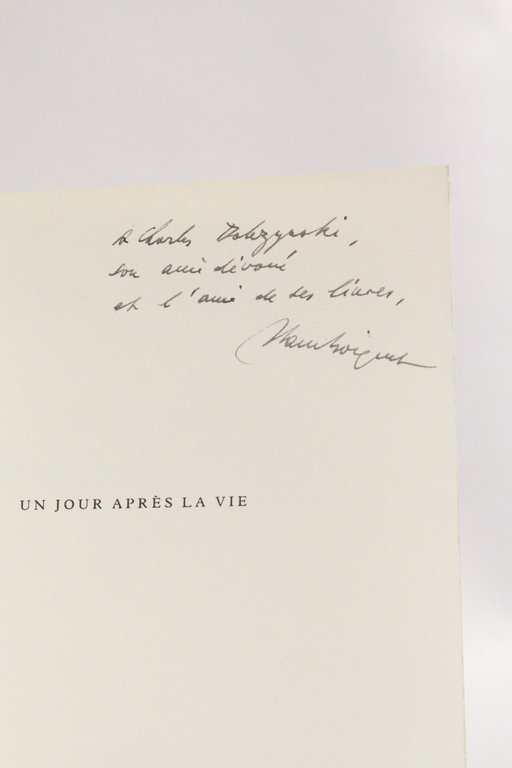 à Charles Dobzynski,
son ami dévoué
et l'ami de ses livres,
Alain Bosquet
UN JOUR APRÈS LA VIE